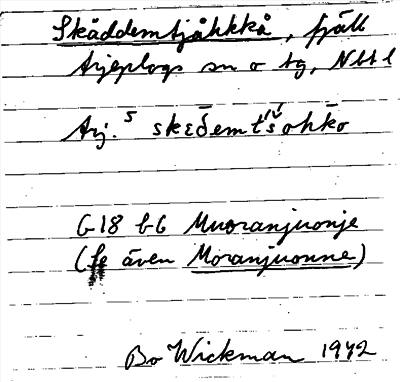 Skäddemtjåhkkå, fjäll
Arjeplogs sn o tg, Nbt l
Arj. 5 skɛδ̄emt́śohko
G18 b6 Muoranjuonje
(se även Moranjuonne)
Bo Wickman 1942